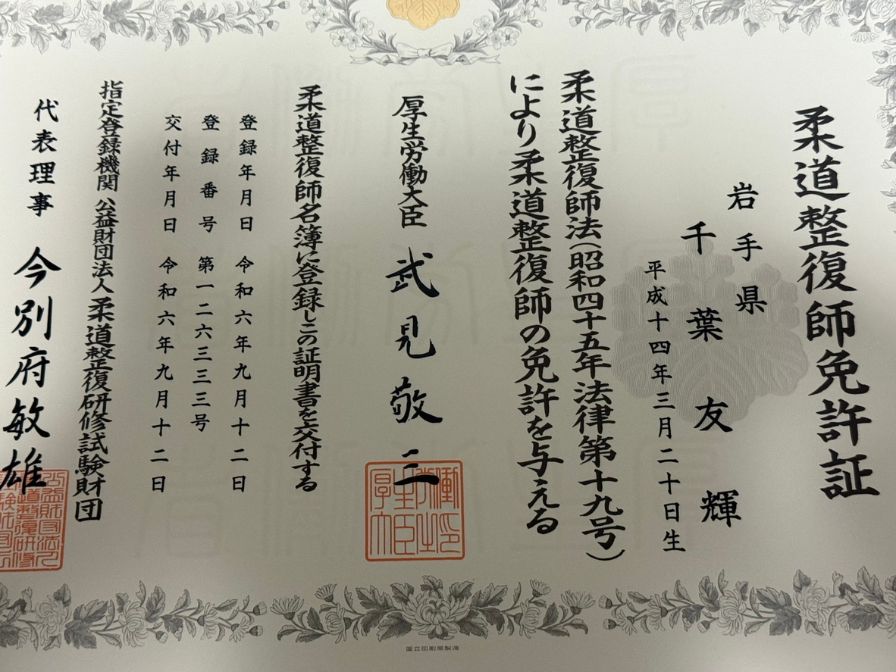 柔道整復師免許証
岩手県
千葉友輝
平成十四年三月二十日生
柔道整復師法(昭和四十五年法律第十九号)
により柔道整復師の免許を与える
厚生労働大臣 武見敬三
柔道整復師名簿に登録しこの証明書を交付する
登録年月日 令和六年九月十二日
登録番号 第一二六三三三号
交付年月日 令和六年九月十二日
指定登録機関 公益財団法人柔道整復研修試験財団
代表理事 今別府敏雄
国立印刷局製造